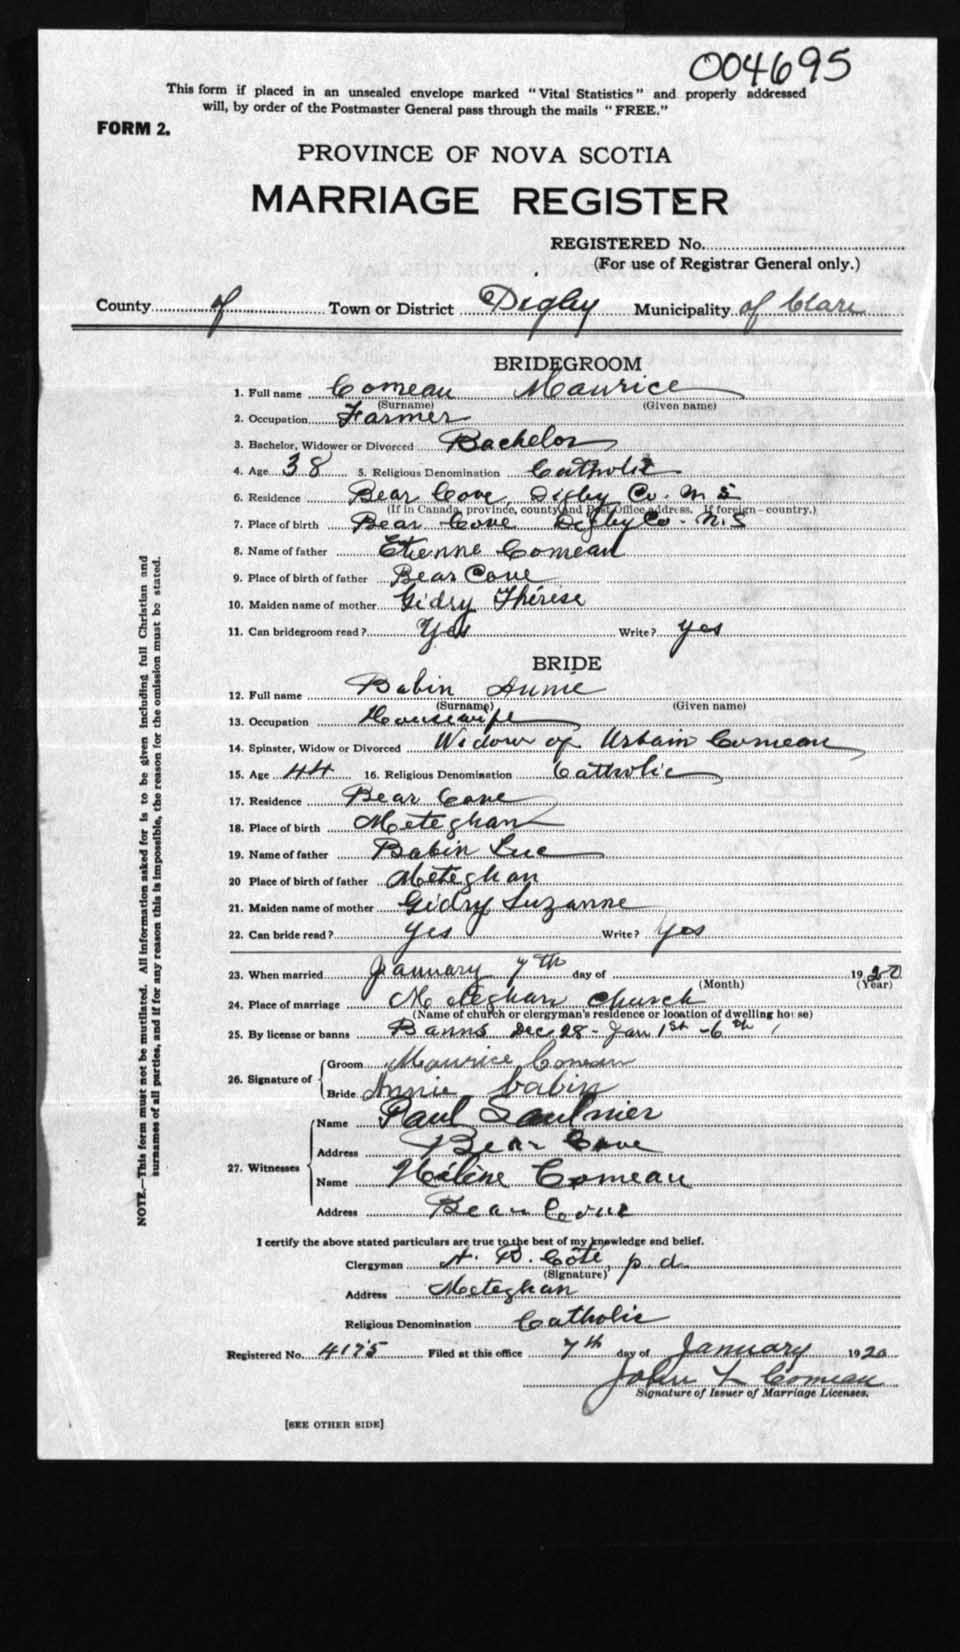 004695
This form if placed in an unsealed envelope marked "Vital Statistics" and properly addressed
will, by order of the Postmaster General pass through the mails "FREE."
FORM 2.
PROVINCE OF NOVA SCOTIA
MARRIAGE REGISTER
REGISTERED No.
(For use of Registrar General only.)
County of Town or District Digby Municipality of Clare
BRIDEGROOM
1. Full name Comeau Maurice
(Surname) (Given name)
2. Occupation Farmer
3. Bachelor, Widower or Divorced Bachelor
4. Age 38 5. Religious Denomination Catholic
6. Residence Bear Cove Digby Co. N S
(If in Canada, province, county and Post Office address. If foreign—country.)
7. Place of birth Bear Cove Digby Co. N.S
8. Name of father Etienne Comeau
9. Place of birth of father Bear Cove
10. Maiden name of mother Gidry Thérèse
11. Can bridegroom read? Yes Write? yes
BRIDE
12. Full name Babin Annie
(Surname) (Given name)
13. Occupation Housewife
14. Spinster, Widow or Divorced Widow of Urbain Comeau
15. Age 44 16. Religious Denomination Catholic
17. Residence Bear Cove
18. Place of birth Meteghan
19. Name of father Babin Luc
20 Place of birth of father Meteghan
21. Maiden name of mother Gidry Suzanne
22. Can bride read? Yes Write? yes
23. When married January 7th day of 1920
(Month) (Year)
24. Place of marriage Meteghan church
(Name of church or clergyman's residence or location of dwelling house)
25. By license or banns Banns Dec. 28 - Jan 1st - 6th
26. Signature of Groom Maurice Comeau
Bride Annie babin
27. Witnesses Name Paul Saulnier
Address Bear Cove
Name Hélène Comeau
Address Bear Cove
I certify the above stated particulars are true to the best of my knowledge and belief.
Clergyman A. B. Côté, p.d.
(Signature)
Address Meteghan
Religious Denomination Catholic
Registered No. 4175 Filed at this office 7th day of January 1920
John L Comeau
Signature of Issuer of Marriage Licenses.
[SEE OTHER SIDE]
NOTE.—This form must not be mutilated. All information asked for is to be given including full Christian and
surnames of all parties, and if for any reason this is impossible, the reason for the omission must be stated.